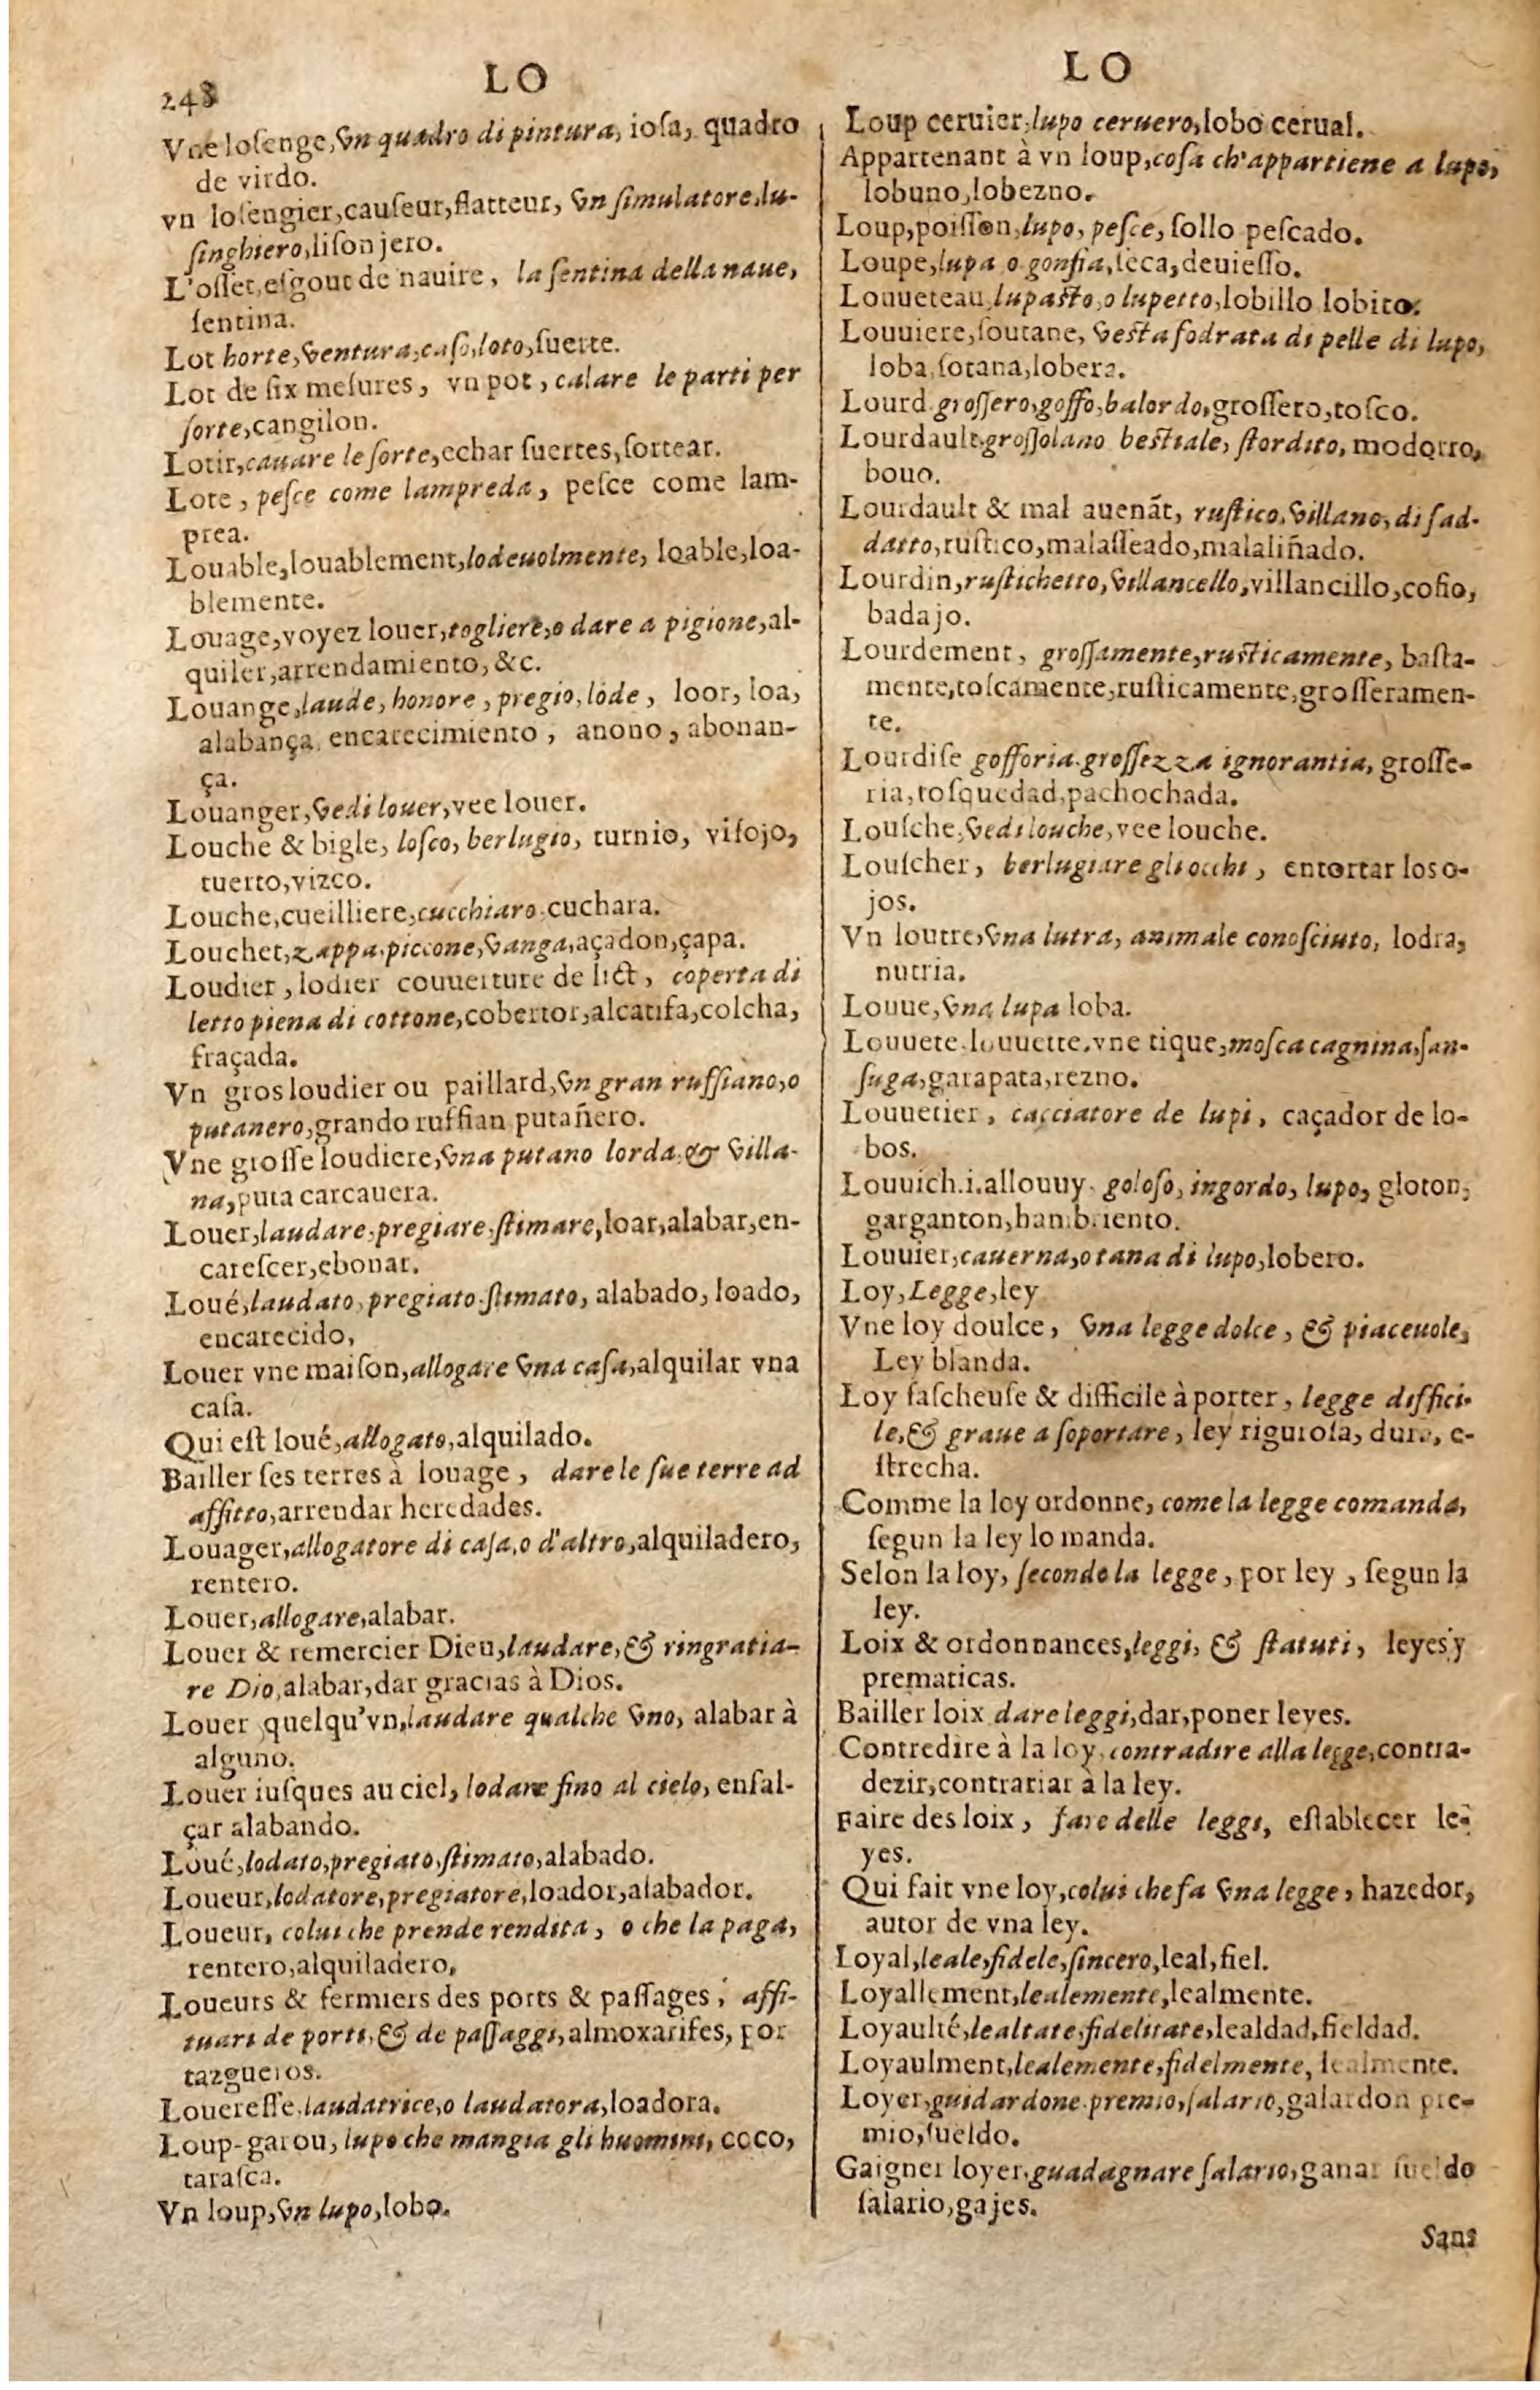 248
LO
Vne losenge, vn quadro di pintura, iosa, quadro
de virdo.
vn losengier, causeur, flatteur, vn simulatore, lu-
singhiero, lisonjero.
L'osset, esgout de nauire, la sentina della naue,
sentina.
Lot horte, ventura, caso, loto, suerte.
Lot de six mesures, vn pot, calare le parti per
sorte, cangilon.
Lotir, cauare le sorte, echar suertes, sortear.
Lote, pesce come lampreda, pesce come lam-
prea.
Louable, louablement, lodeuolmente, loable, loa-
blemente.
Louage, voyez louer, togliere, o dare a pigione, al-
quiler, arrendamiento, &c.
Louange, laude, honore, pregio, lode, loor, loa,
alabança, encarecimiento, anono, abonan-
ça.
Louanger, vedi louer, vee louer.
Louche & bigle, losco, berlugio, turnio, visojo,
tuerto, vizco.
Louche, cueilliere, cucchiaro, cuchara.
Louchet, zappa, piccone, vanga, açadon, çapa.
Loudier, lodier couuerture de lict, coperta di
letto piena di cottone, cobertor, alcatifa, colcha,
fraçada.
Vn gros loudier ou paillard, vn gran ruffiano, o
putanero, grando ruffian putañero.
Vne grosse loudiere, vna putano lorda, & villa-
na, puta carcauera.
Louer, laudare, pregiare, stimare, loar, alabar, en-
carescer, ebonar.
Loué, laudato, pregiato, stimato, alabado, loado,
encarecido,
Louer vne maison, allogare vna casa, alquilar vna
casa.
Qui est loué, allogato, alquilado.
Bailler ses terres à louage, dare le sue terre ad
affitto, arrendar heredades.
Louager, allogatore di casa, o d'altro, alquiladero,
rentero.
Louer, allogare, alabar.
Louer & remercier Dieu, laudare, & ringratia-
re Dio, alabar, dar gracias à Dios.
Louer quelqu'vn, laudare qualche vno, alabar à
alguno.
Louer iusques au ciel, lodare fino al cielo, ensal-
çar alabando.
Loué, lodato, pregiato, stimato, alabado.
Loueur, lodatore, pregiatore, loador, alabador.
Loueur, colui che prende rendita, o che la paga,
rentero, alquiladero,
Loueurs & fermiers des ports & passages, affi-
tuari de porti, & de passaggi, almoxarifes, por
tazgueros.
Loueresse, laudatrice, o laudatora, loadora.
Loup-garou, lupo che mangia gli huomini, coco,
tarasca.
Vn loup, vn lupo, lobo.
LO
Loup ceruier, lupo ceruero, lobo cerual.
Appartenant à vn loup, cosa ch'appartiene a lupo,
lobuno, lobezno.
Loup, poisson, lupo, pesce, sollo pescado.
Loupe, lupa o gonfia, seca, deuiesso.
Louueteau, lupasto, o lupetto, lobillo lobito.
Louuiere, soutane, vesta fodrata di pelle di lupo,
loba, sotana, lobera.
Lourd grossero, goffo, balordo, grossero, tosco.
Lourdault, grossolano bestiale, stordito, modorro,
bouo.
Lourdault & mal auenãt, rustico, villano, disad-
datto, rustico, malasseado, malaliñado.
Lourdin, rustichetto, villancello, villancillo, cofio,
badajo.
Lourdement, grossamente, rusticamente, basta-
mente, toscamente, rusticamente, grosseramen-
te.
Lourdise gofforia, grossezza ignorantia, grosse-
ria, tosquedad, pachochada.
Lousche, vedi louche, vee louche.
Louscher, berlugiare gli occhi, entortar los o-
jos.
Vn loutre, vna lutra, animale conosciuto, lodra,
nutria.
Louue, vna lupa loba.
Louuete, louuette, vne tique, mosca cagnina, san-
suga, garapata, rezno.
Louuetier, cacciatore de lupi, caçador de lo-
bos.
Louuich.i.allouuy, goloso, ingordo, lupo, gloton,
garganton, hambriento.
Louuier, cauerna, o tana di lupo, lobero.
Loy, Legge, ley
Vne loy doulce, vna legge dolce, & piaceuole,
Ley blanda.
Loy fascheuse & difficile à porter, legge diffici-
le, & graue a soportare, ley rigurosa, dura, e-
strecha.
Comme la loy ordonne, come la legge comanda,
segun la ley lo manda.
Selon la loy, secondo la legge, por ley, segun la
ley.
Loix & ordonnances, leggi, & statuti, leyes y
prematicas.
Bailler loix dare leggi, dar, poner leyes.
Contredire à la loy, contradire alla legge, contra-
dezir, contrariar à la ley.
Faire des loix, fare delle leggi, establecer le-
yes.
Qui fait vne loy, colui che fa vna legge, hazedor,
autor de vna ley.
Loyal, leale, fidele, sincero, leal, fiel.
Loyallement, lealemente, lealmente.
Loyaulté, lealtate, fidelitate, lealdad, fieldad.
Loyaulment, lealemente, fidelmente, lealmente.
Loyer, guidardone, premio, salario, galardon pre-
mio, sueldo.
Gaigner loyer, guadagnare salario, ganar sueldo
salario, gajes.
Sans